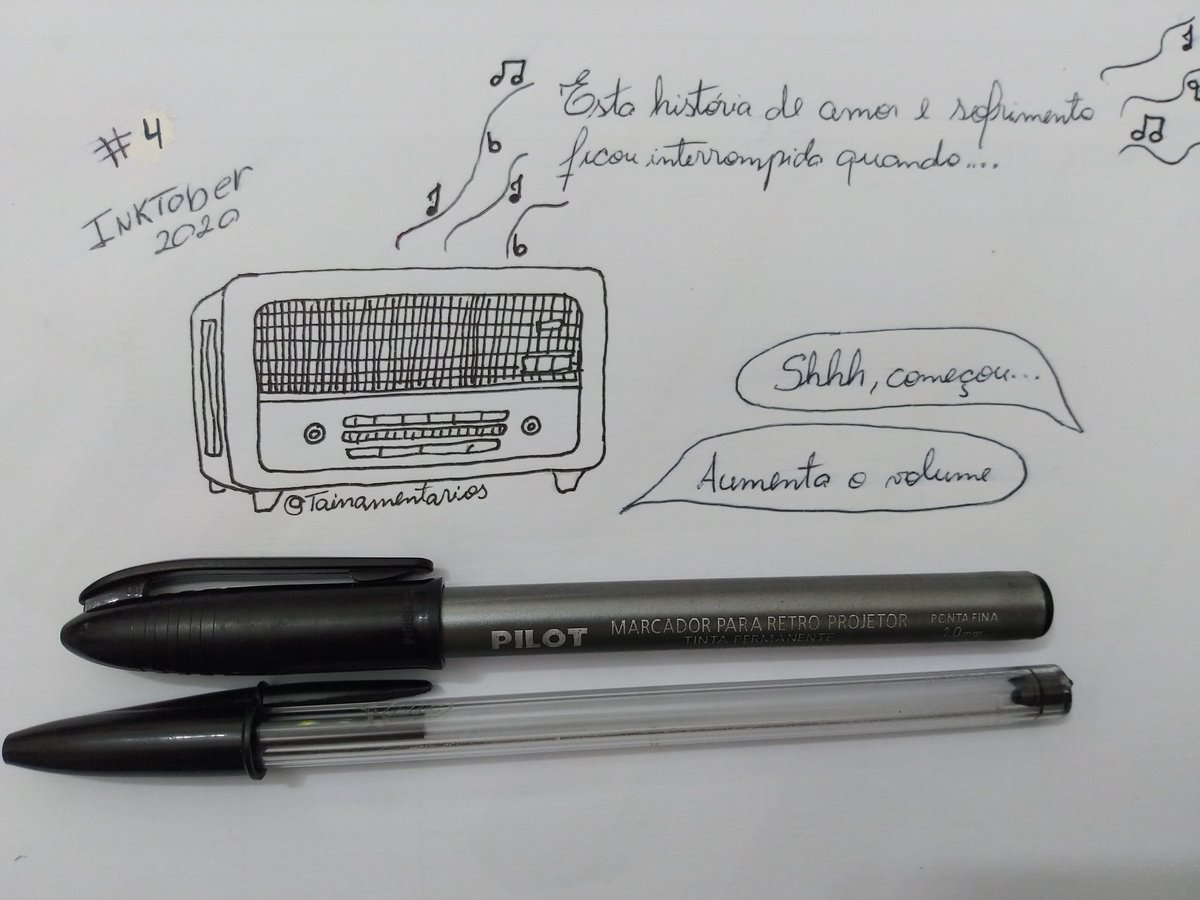 #4
INKTOBER
2020
Esta história de amor e sofrimento
ficou interrompida quando....
Shhh, começou...
Aumenta o volume
@Tainamentarios
PILOT MARCADOR PARA RETRO PROJETOR PONTA FINA
TINTA PERMANENTE 1.0mm